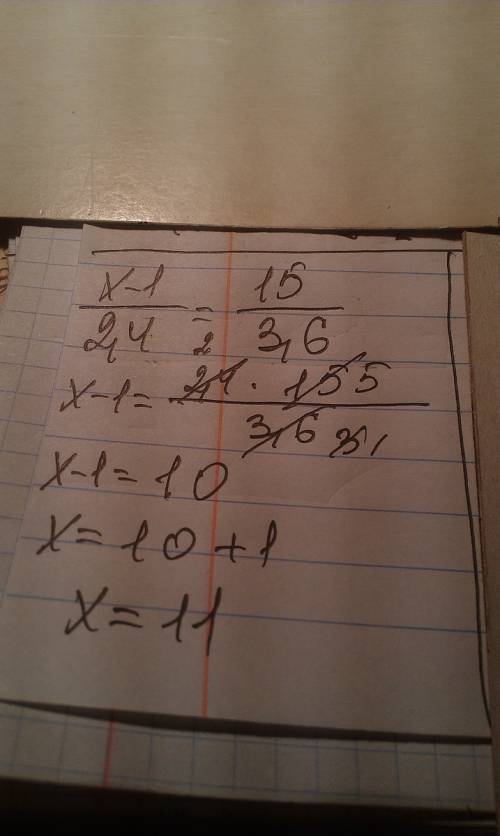 x-1/2,4 = 15/3,6
x-1= 2,4 2 · 15 5 / 3,6 3 1
x-1=10
x=10+1
x=11